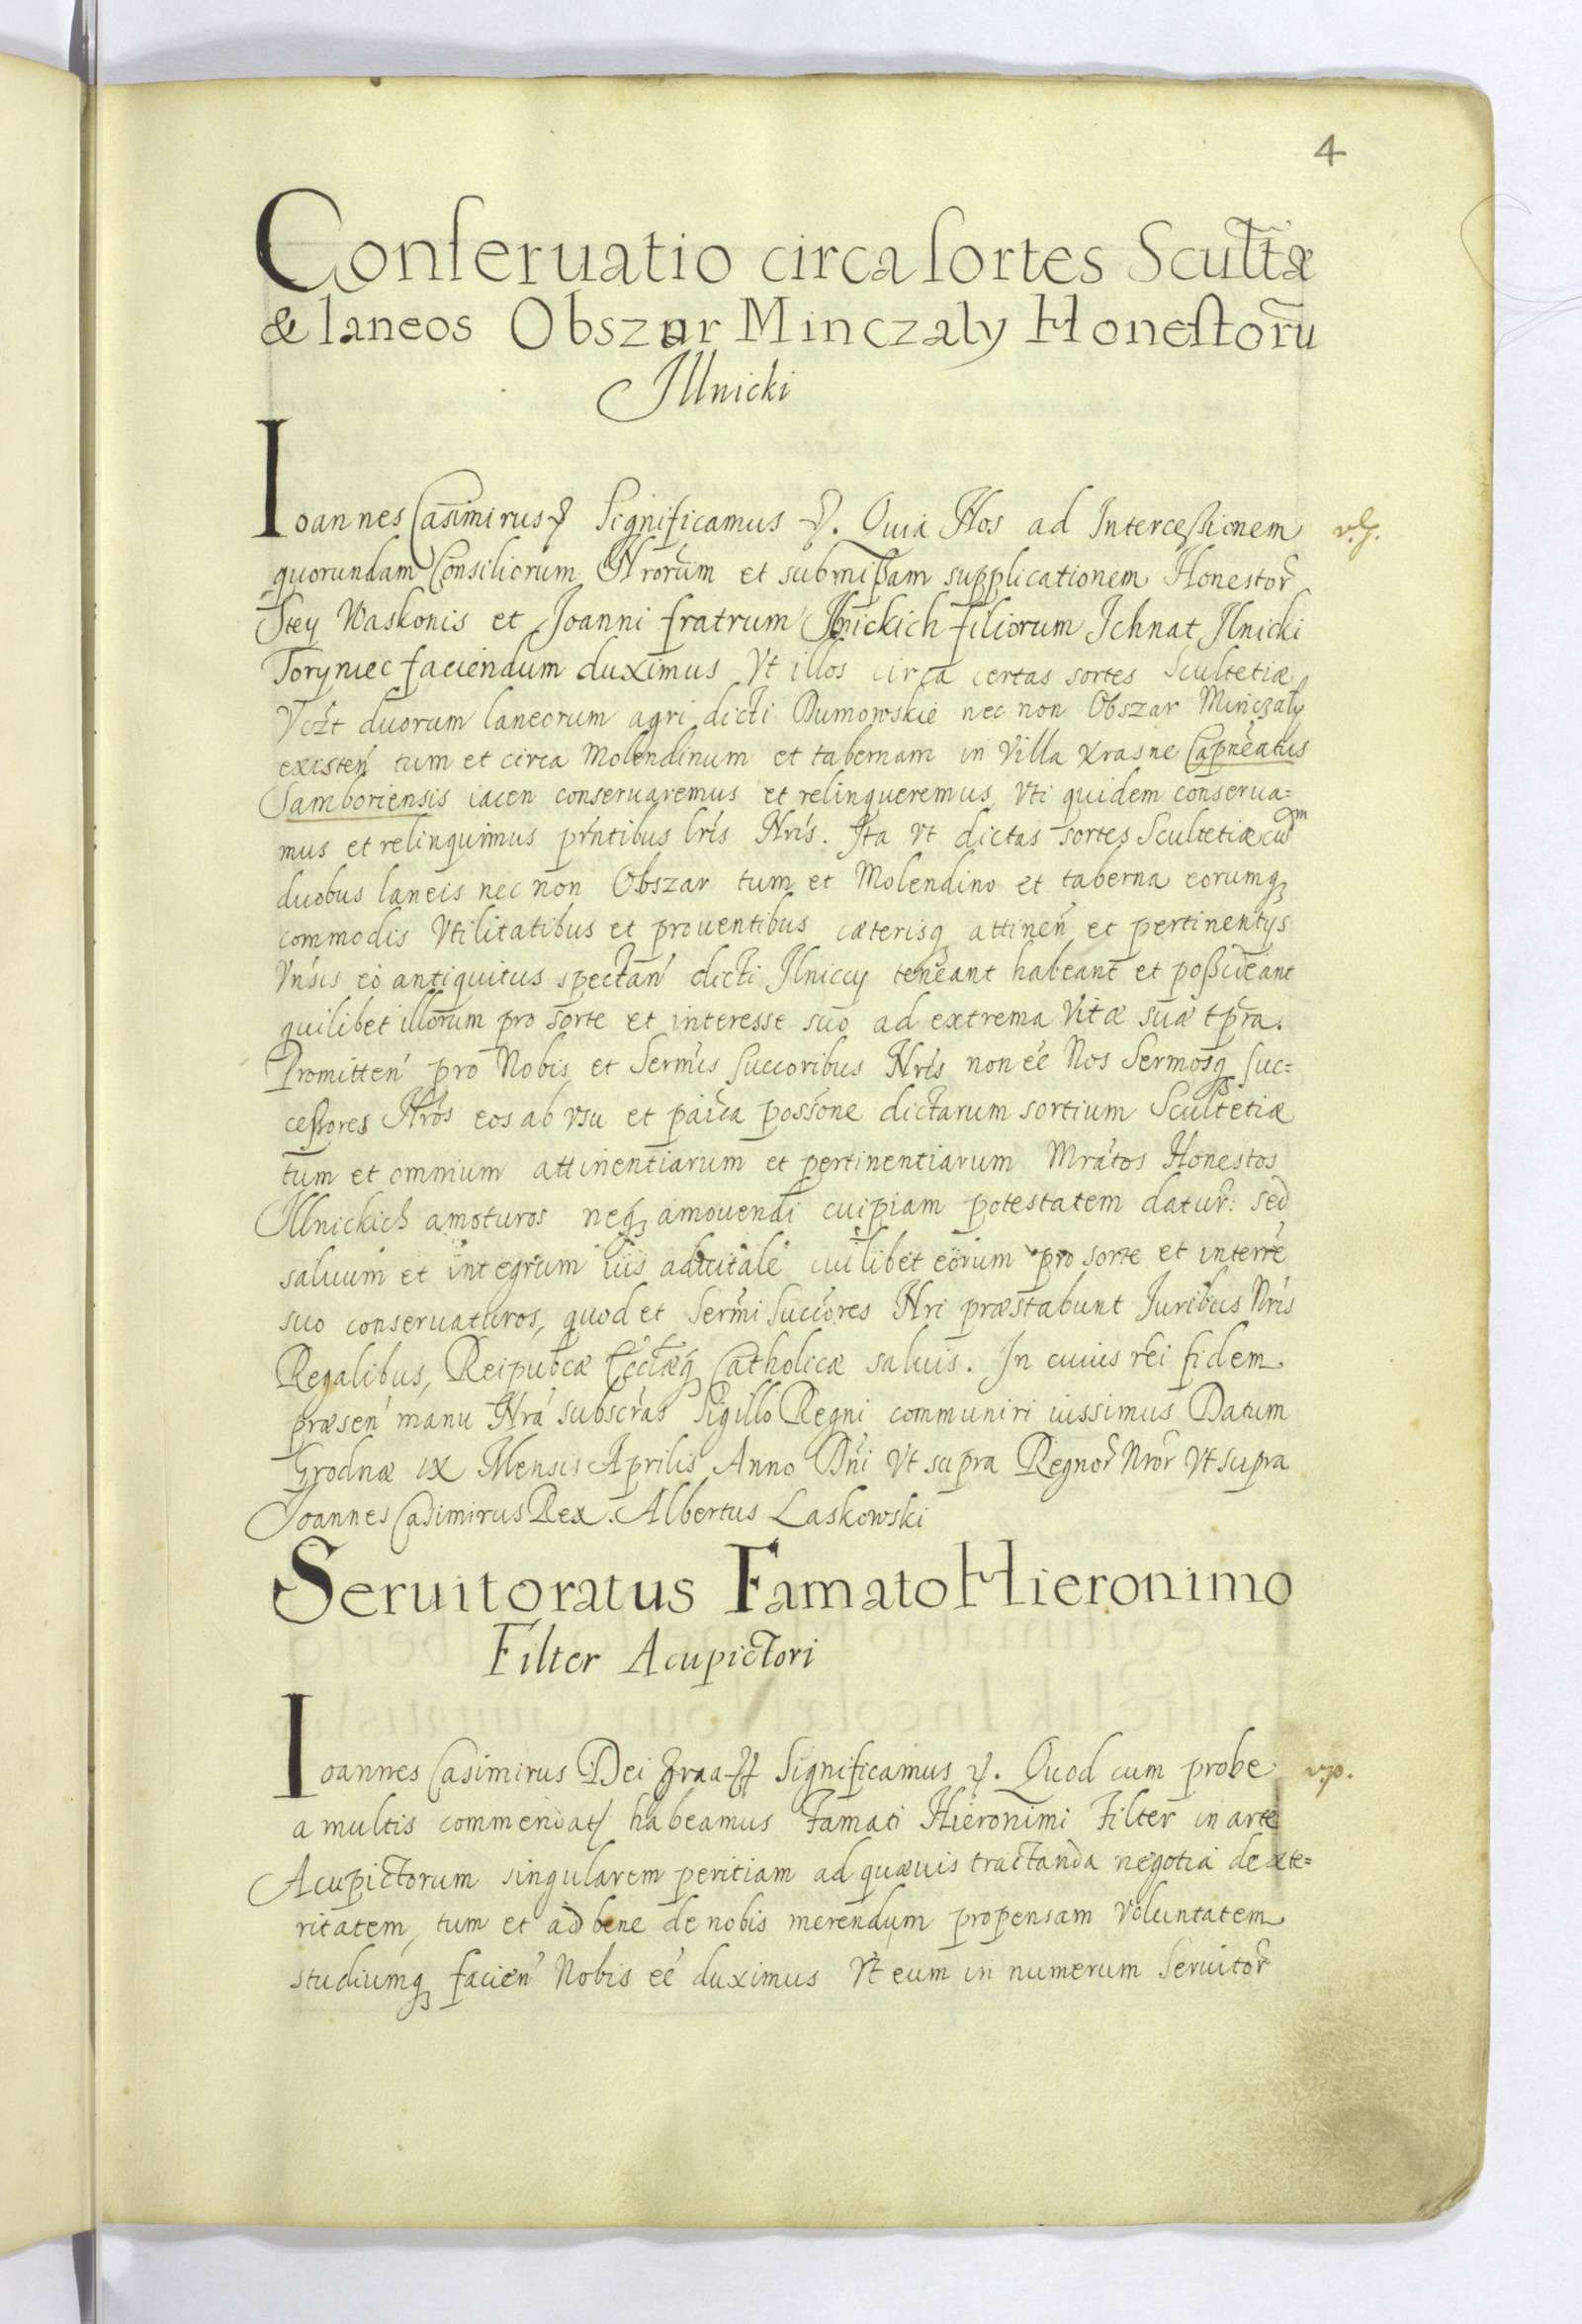 4
Conseruatio circa sortes Scultæ
& laneos Obszar Minczaly Honestorũ
Illnicki
Ioannes Casimirus Significamus Quia Nos ad Intercessionem
quorundam Consiliorum Nrorum et submissam supplicationem Honestor̃
Stey Waskonis et Joanni fratrum Ilnickich filiorum Ichnat Ilnicki
Toryniec faciendum duximus Vt illos circa certas sortes Scultetiæ
Vczt duorum laneorum agri dicti Dumowskie nec non Obszar Minczaly
existen̄ tum et circa Molendinum et tabernam in Villa Krasne Capneatus
Samboriensis iacen conseruaremus et relinqueremus, Vti quidem conserua=
mus et relinquimus pr̃ntibus lr̃is Nr̃is. Ita Vt dictas sortes Scultetiæ cum
duobus laneis nec non Obszar tum et Molendino et taberna eorumq
commodis Vtilitatibus et prouentibus cæterisq attinen̄ et pertinentys
Vnsis eò antiquitus spectan̄ dicti Ilniccy teneant habeant et possideant
quilibet illorum pro sorte et interesse suo ad extrema Vitæ suæ tpra.
Promitten̄ pro Nobis et Sermis Succoribus Nris non eé Nos Sermosq Suc=
cessores Nros eos ab vsu et paica possone dictarum sortium Scultetiæ
tum et omnium attinentiarum et pertinentiarum Mratos Honestos
Illnickich amoturos neq amouendi cuipiam potestatem datur: sed
saluum et integrum ius aduitale cuilibet eorum pro sorte et interre
suo conseruaturos, quod et Sermi Succores Nri præstabunt Iuribus Nris
Regalibus, Reipubcæ Ecclæq Catholicæ saluis. In cuius rei fidem
præsen̄ manu Nrá subscras Sigillo Regni communiri iussimus Datum
Grodnæ IX Mensis Aprilis Anno Dni Vt supra Regnor̃ Nror̃ Vt supra
Joannes Casimirus Rex. Albertus Laskowski
Seruitoratus Famato Hieronimo
Filter Acupictori
Ioannes Casimirus Dei Graa Significamus Quod cum probe
a multis commendat habeamus Famati Hieronimi Filter in arte
Acupictorum singularem peritiam ad quæuis tractanda negotia dexte=
ritatem, tum et ad bene de nobis merendum propensam Voluntatem
studiumq facien̄ Nobis eé duximus Vt eum in numerum Seruitor̃